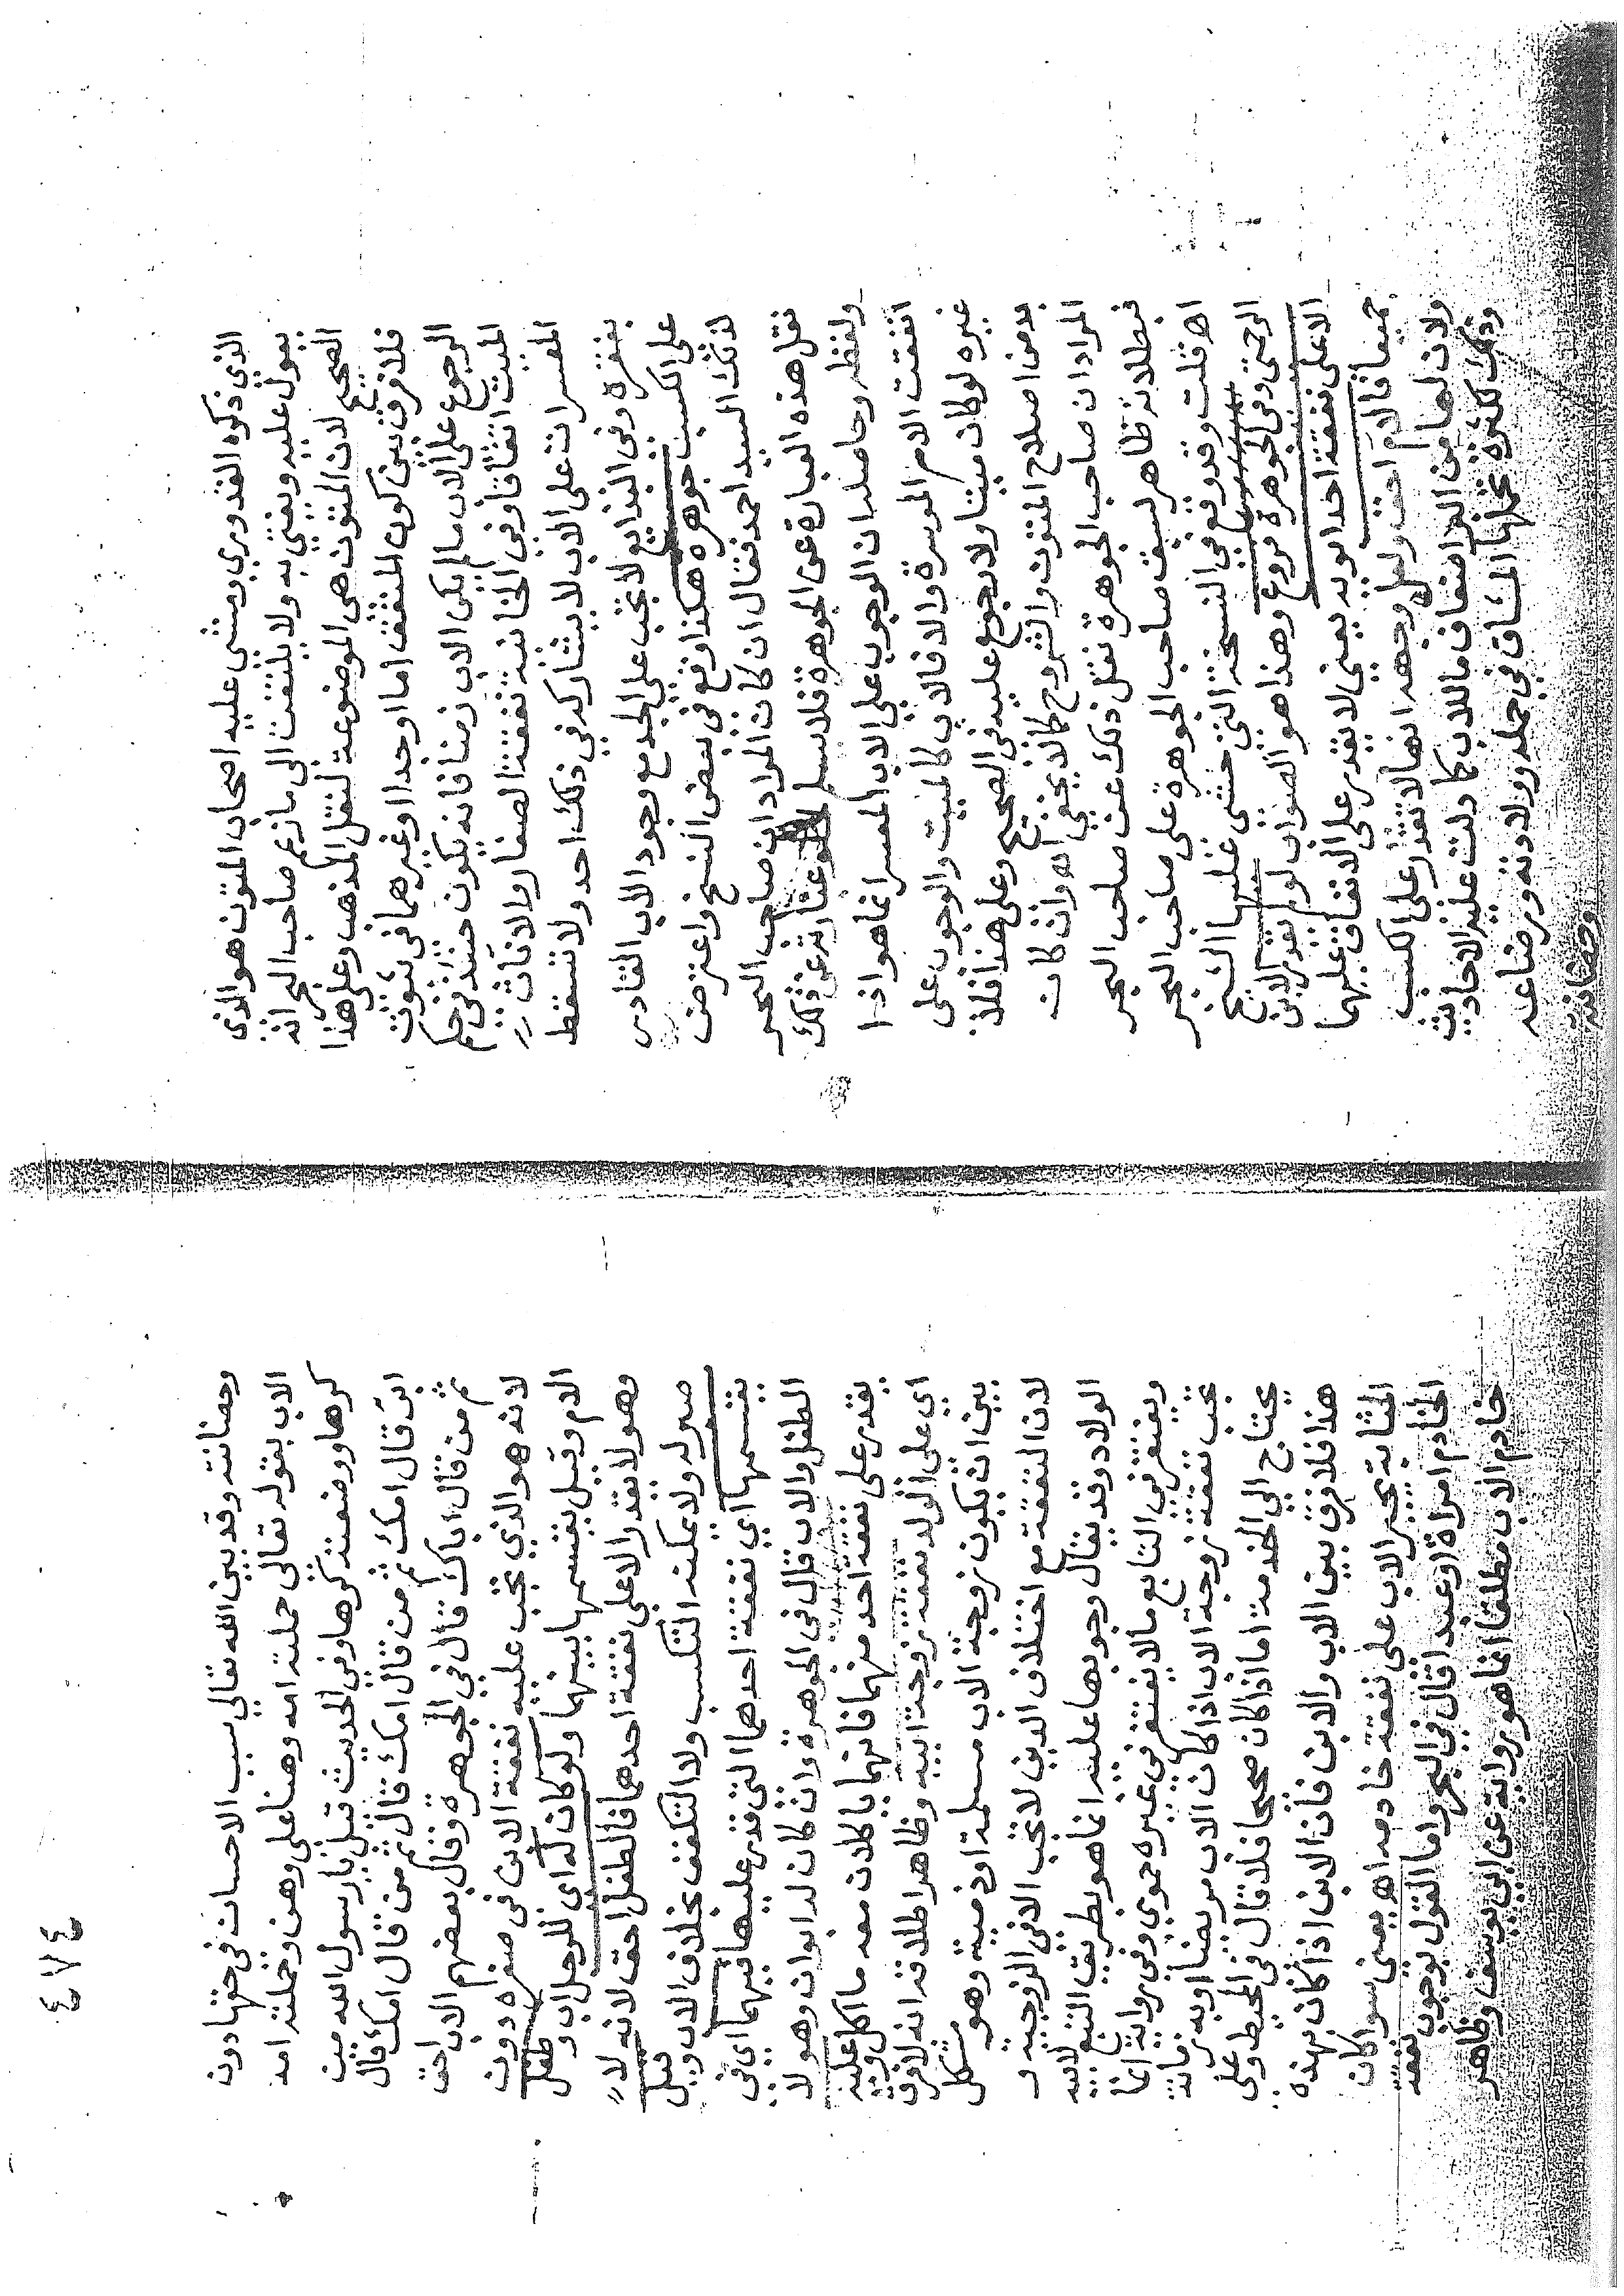 الذي ذكره القدوري ومشى عليه اصحاب المتون هو الذي
يعول عليه ويفتي به ولا يلتفت الى ما زعم صاحب البحر انه
الصحيح لان المتون هي الموضوعة لنقل المذهب وعلى هذا
فلا فرق بين كون المنفق اما او جدا او غيرهما في ثبوت
الرجوع على الاب ما لم يكن الاب زمنا فانه يكون حينئذ في حكم
الميت اتفاقا وفي الخانية نفقة الصغار والاناث
المعسرات على الاب لا يشاركه في ذلك احد ولا تسقط
بفقره وفي البدايع لا تجب على الجد مع وجود الاب القادر
على الكسب جوهره هكذا وقع في بعض النسخ واعترض
لذلك السيد احمد فقال ان كان المراد ان صاحب البحر
نقل هذه العبارة عن الجوهرة فلا يسلم عبارته عن ذلك
ولفظه وحاصله ان الوجوب على الاب المعسر انما هو اذا
انفقت الام الموسرة والا فالاب كالميت والوجوب على
غيره لو كان ميتا ولا رجوع عليه في الصحيح وعلى هذا فلا
بد من اصلاح المتون والشروح كما لا يخفي اه وان كان
المراد ان صاحب الجوهرة نقل ذلك عن صاحب البحر
فبطلانه ظاهر لسبق صاحب الجوهرة على صاحب البحر
اه قلت وقد وقع في النسخة التي حشى عليها الشيخ
الرحمتي وفي الجوهرة فروع وهذا هو الصواب لو لم يقدر الابن
الا على نفقة احد ابويه يعني لا يقدر على الانفاق عليهما
جميعا فالام احق ولعل وجهه انها لا تقدر على الكسب
ولان لها من البر اضعاف ما للاب كما دلت عليه الاحاديث
وذلك لكثرة تحملها المشاق في حمله وولادته ورضاعه
وحضانته
٤٧٤
وحضانته وقد بين الله تعالي سبب الاحسان في حقها دون
الاب بقوله تعالى حملته امه وهنا على وهن وحملته امه
كرها ووضعته كرها وفي الحديث قيل يا رسول الله من
ابر قال امك ثم من قال امك قال ثم من قال امك قال
ثم من قال اباك قال في الجوهرة وقال بعضهم الاب احق
لانه هو الذي تجب عليه نفقة الابن في صغره دون
الام وقيل يقسمها بينهما ولو كان له اي للرجل اب وطفل
وهو لا يقدر الا على نفقة احدهما فالطفل احق لانه لا
صبر له ولا يمكنه التكسب ولا التكفف بخلاف الاب وقيل
يقسمها اي نفقة احدهما التي قدر عليها فيهما اي في
الطفل والاب قال في الجوهرة وان كان له ابوان وهو لا
يقدر على نفقة احد منهما فانهما ياكلان معه ما اكل وعليه
اي على الولد نفقة زوجة ابيه وظاهر اطلاقه انه لا فرق
بين ان يكون زوجة الاب مسلمة او ذمية وهو مشكل
لان النفقة مع اختلاف الدين لا تجب الا في الزوجية و
الولاد وقد يقال وجوبها عليه انما هو بطريق التبع لابيه
ويغتفر في التابع ما لا يغتفر في غيره حموي وفي رواية انما
تجب نفقة زوجة الاب اذا كان الاب مريضا او به زمانة
يحتاج الي الخدمة اما اذا كان صحيحا فلا قال في المحيط وعلى
هذا فلا فرق بين الاب والابن فان الابن اذا كان بهذه
المثابة يجبر الاب على نفقة خادمه اه يعني سوا كان
الخادم امراة او عبدا قال في البحر واما القول بوجوب نفقة
خادم الاب مطلقا انما هو رواية عن ابي يوسف وظاهر